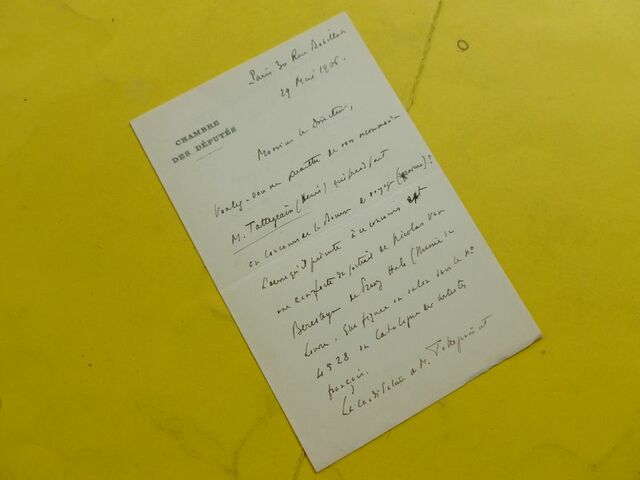 Paris 30 Rue
29 Mai 1906.
CHAMBRE
DES DÉPUTÉS
Monsieur le Directeur,
Voulez-vous me permettre de vous recommander
M. Tattegrain (Denis) qui prend part
au concours de la Bourse de voyage (gravure)?
L'œuvre qu'il présente à ce concours est
une eau forte du portrait de Nicolas Van
Beresteyn de Franz Hals (Musée du
Louvre. Elle figure au salon sous le no
4528 du Catalogue des artistes
français.
La candidature de M. Tattegrain est